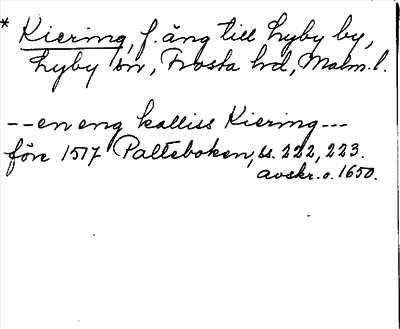 * Kiering, f. äng till Lyby by,
Lyby sn, Frosta hd, Malm. l.
-- en eng kalliss Kiering ---
före 1517 Palteboken, bl. 222, 223.
avskr. o. 1650.